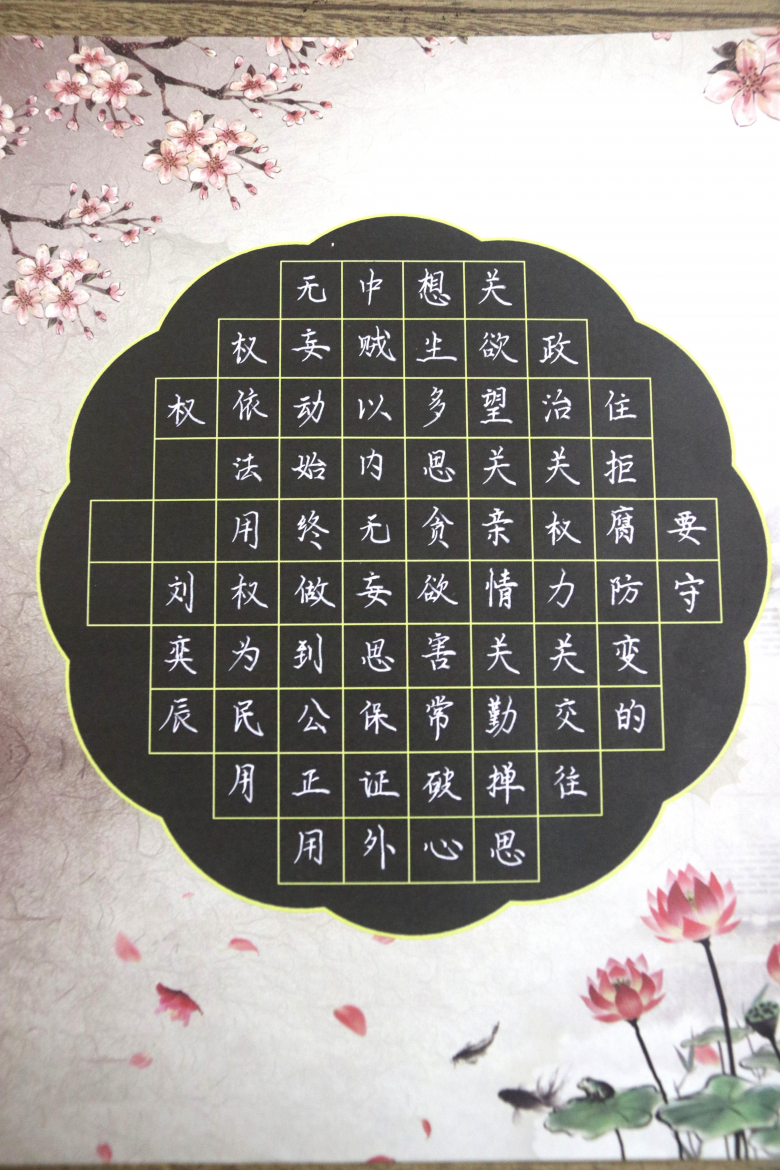 要守
住拒腐防变的
政治关权力关交往
关欲望关亲情关勤掸思
想尘多思贪欲害常破心
中贼以内无妄思保证外
无妄动始终做到公正用
权依法用权为民用
权
刘奕辰